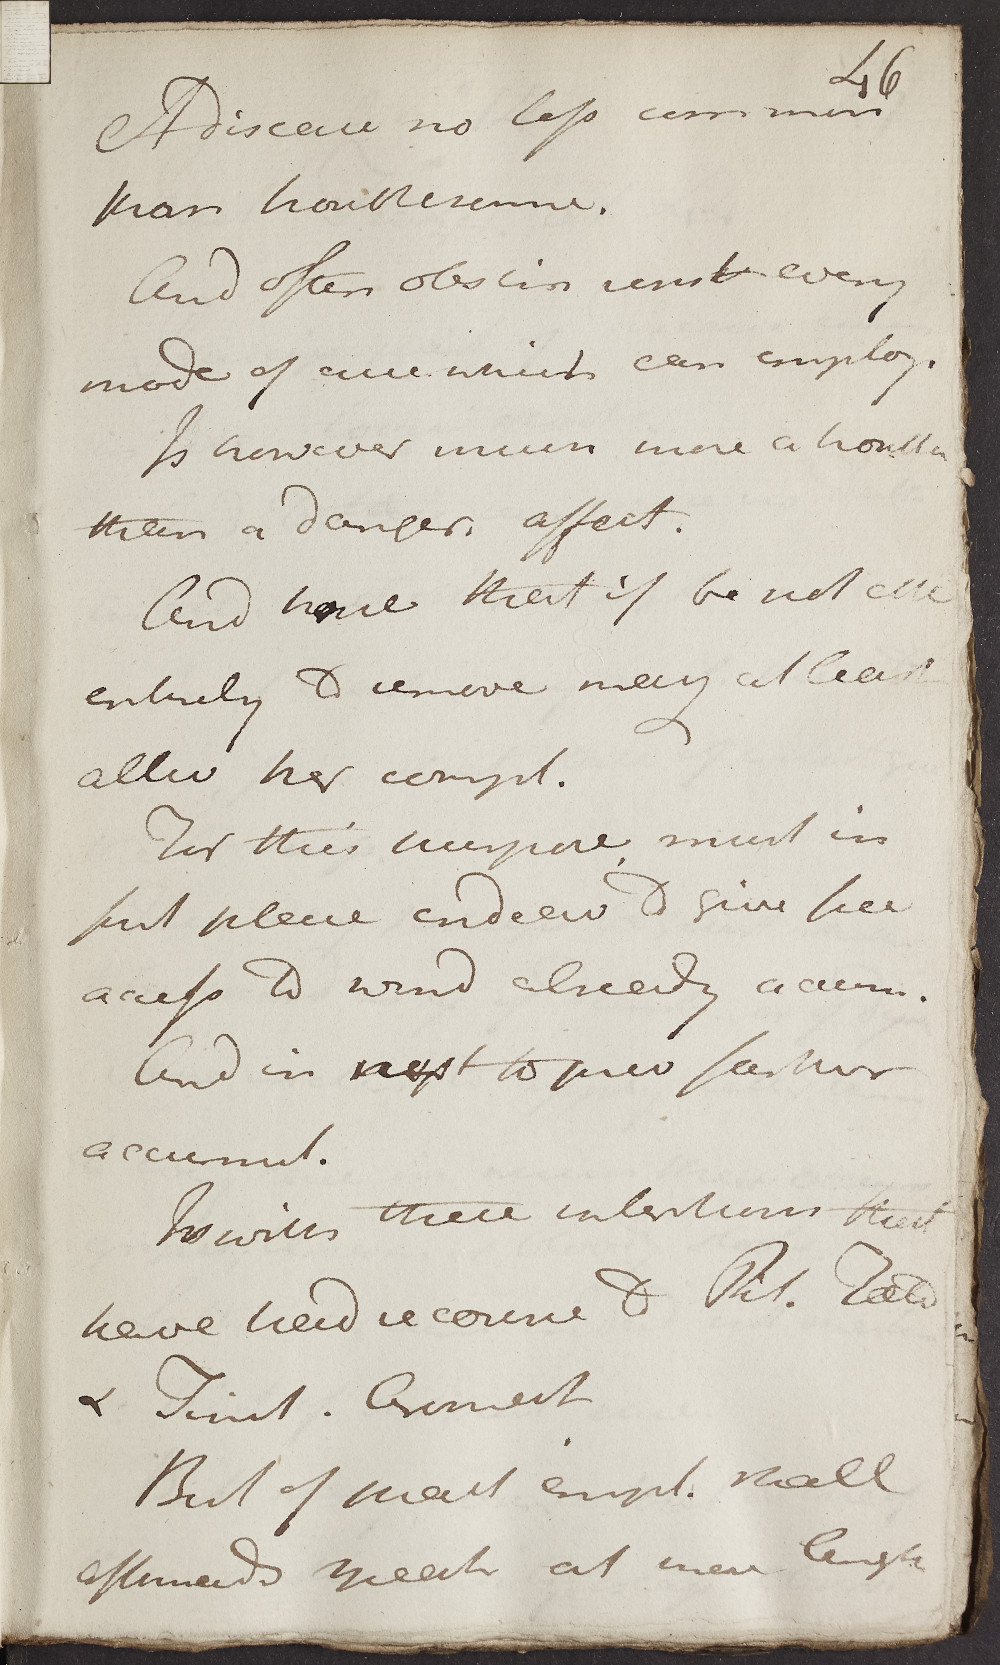 46
A disease no less common
than troublesome.
And often obstin resist every
mode of cure which can employ.
Is however much more a trouble
than a danger. affect.
And hope that if be not able
entirely to remove may at least
allev her compl.
For this purpose, must in
first place endeav to give free
access to wind already accum.
And in next to prev farther
accumul.
Is with these intentions that
have had recourse to Pil. Foetid
& Tinct. Aromat
But of that empl. shall
afterwards speak at more length